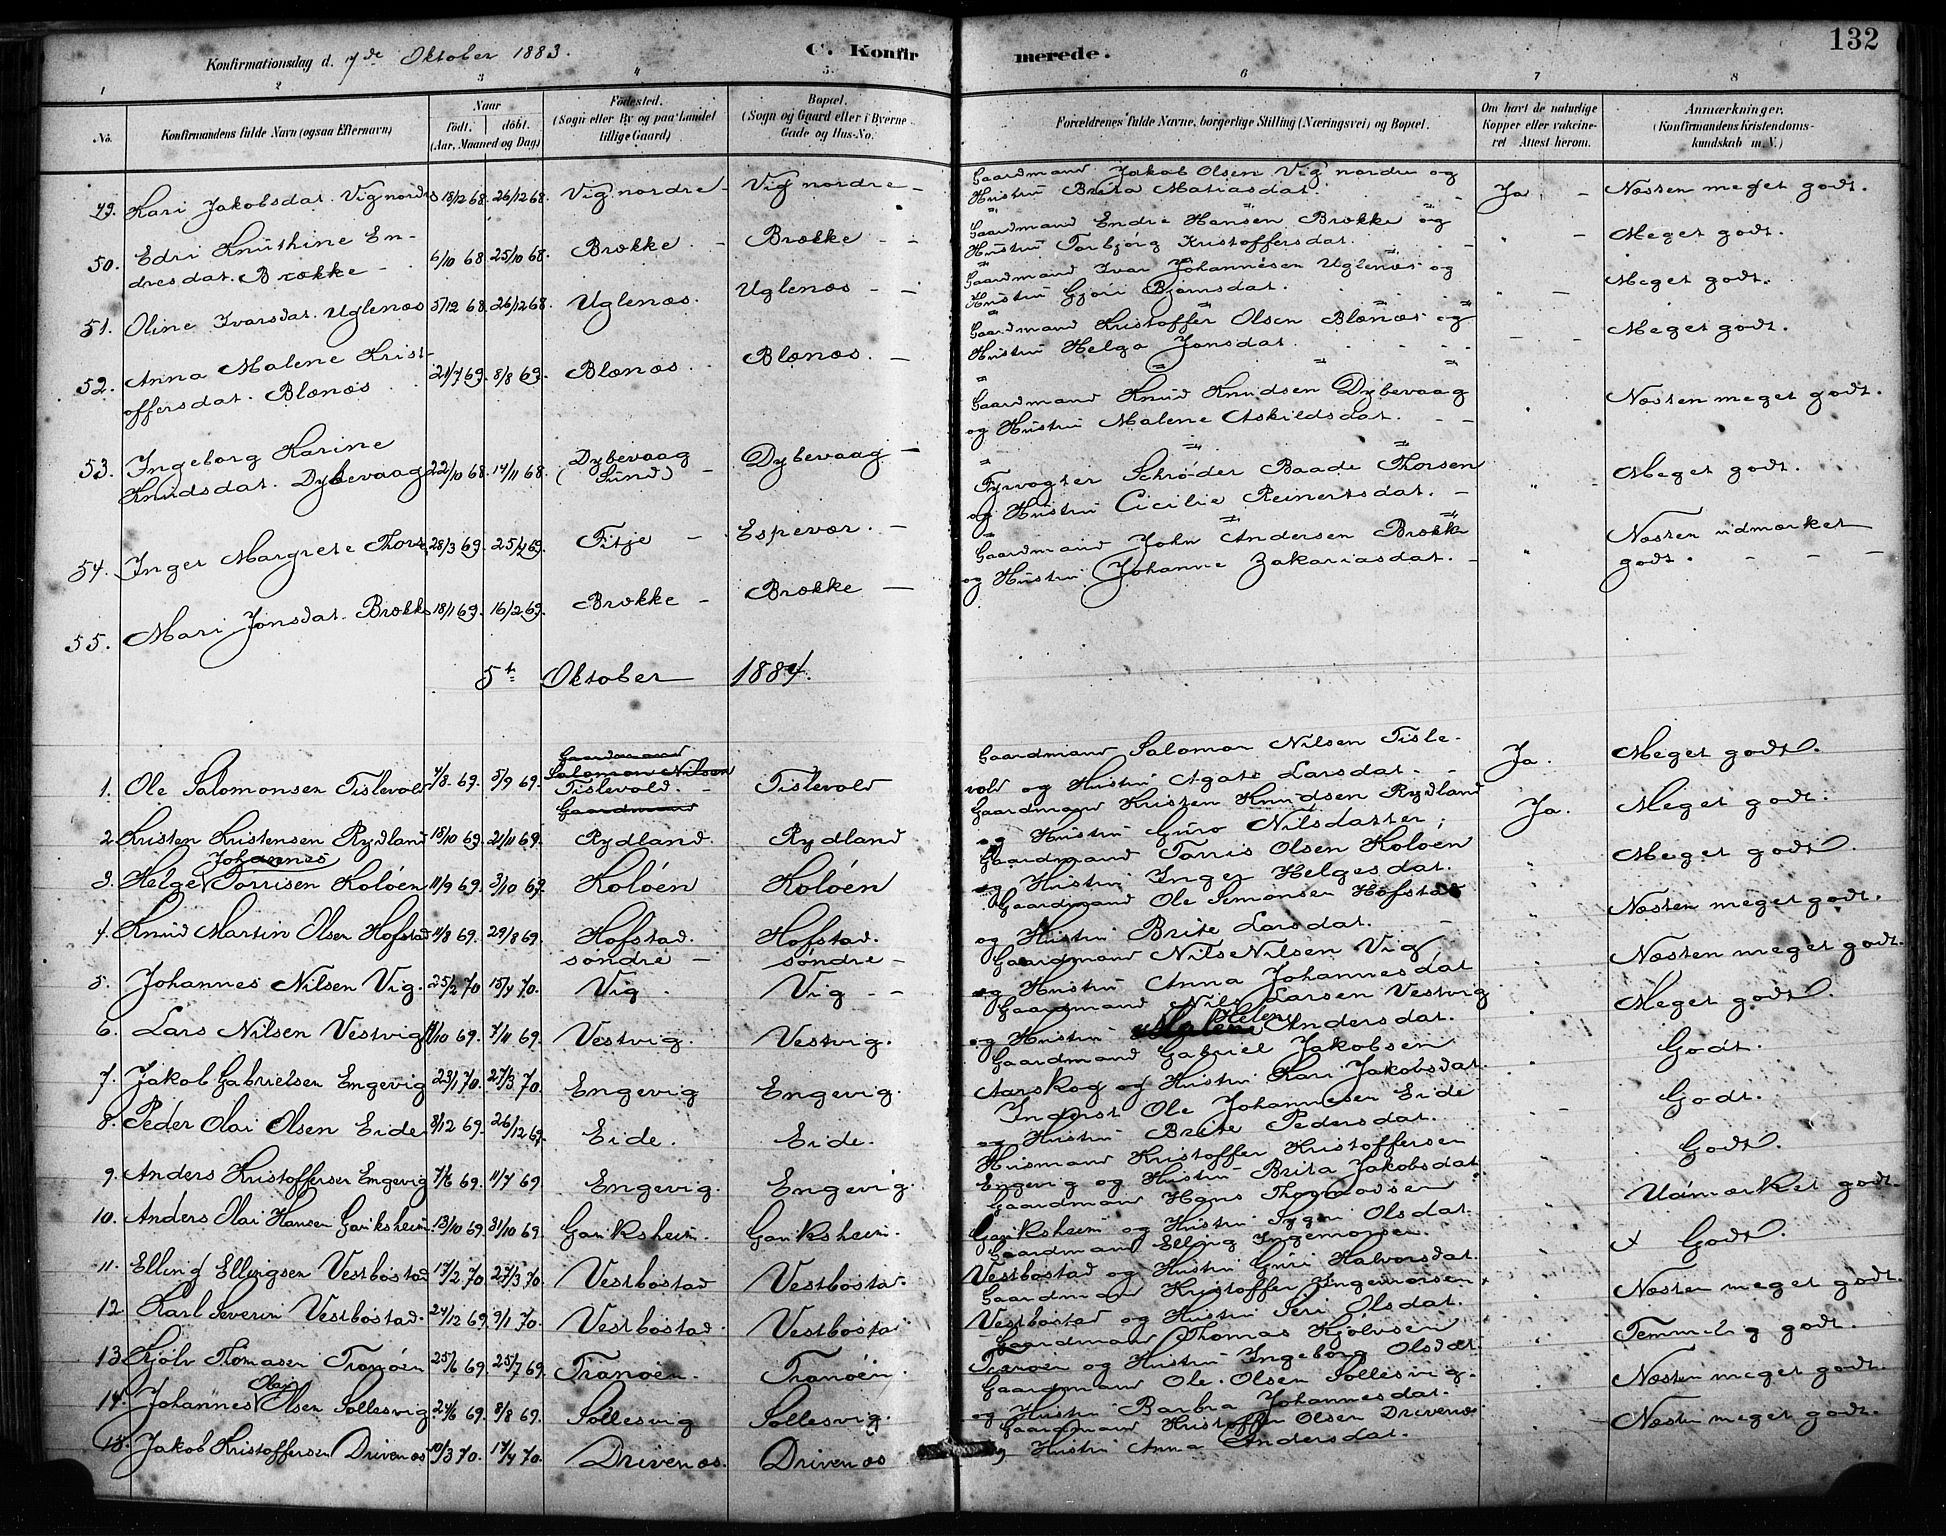 132
Konfirmationsdag d. 7de Oktober 1883.
C. Konfirmerede.
1 2 3 4 5. 6 7 8
No. Konfirmandens fulde Navn (ogsaa Efternavn) Naar født. døbt. (Aar, Maaned og Dag) Fødested. (Sogn eller By og paa Landet tillige Gaard) Bopæl. (Sogn og Gaard eller i Byerne Gade og Hus-No.) Forældrenes fulde Navne, borgerlige Stilling (Næringsvei) og Bopæl. Om havt de naturlige Kopper eller vakcineret Attest herom. Anmærkninger. (Konfirmandens Kristendomskundskab m. V.)
49. Kari Jakobsdat. Vig nordre 18/12 68. 26/12 68. Vig nordre - Vig nordre - Gaardmand Jakob Olsen Vig nordre og Ja. - Næsten meget godt.
Hustru Brita Matiasdat.
50. Edri Knuthine En- 6/10 68 25/10 68. Brække - Brække - Gaardmand Endre Hansen Brække og " - Meget godt.
dresdat. Brække - Hustru Torbjørg Kristoffersdat.
51. Oline Ivarsdat. Uglenæs 5/12 68. 26/12 68. Uglenæs. Uglenæs - Gaardmand Ivar Johannesen Uglenæs og " - Meget godt.
Hustru Gjøri Bjørnsdat.
52. Anna Malene Krist- 21/7 69. 8/8 69. Blænæs. Blænæs. - Gaardmand Kristoffer Olsen Blænæs og - - Meget godt.
offersdat. Blænæs Hustru Helga Jonsdat.
53. Ingeborg Karine 22/10 68. 14/11 68. Dybevaag Dybevaag - Gaardmand Knud Knudsen Dybevaag Næsten meget godt.
Knudsdat. Dybevaag (Sund) og Hustru Malene Askildsdat.
54. Inger Margrete Thors. 28/3 69. 25/4 69. Fitje - Espevær. - Fyrvogter Schrøder Baade Thorsen " - Meget godt.
og Hustru Cicilie Reinertsdat. -
55. Mari Jonsdat. Brække 18/1 69. 16/2 69. Brække - Brække - Gaardmand John Andersen Brække " Næsten udmærket
og Hustru Johanne Zakariasdat. - godt.
5te Oktober 1884.
1. Ole Salomonsen Tislevold 4/8 69. 5/9 69. Gaardmand Salomon Nilsen Tislevold. - Gaardmand Tislevold Gaardmand Salomon Nilsen Tisle- Ja. Meget godt.
vold og Hustru Agate Larsdat.
2. Kristen Kristensen Rydland 18/10 69. 21/11 69. Rydland. Rydland Gaardmand Kristen Knudsen Rydland Ja. Meget godt.
og Hustru Guro Nilsdatter;
3. Helge Johannes Torrisen Koløen 11/9 69. 3/10 69. Koløen Koløen Gaardmand Torris Olsen Koløen " Meget godt.
og Hustru Inger Helgesdat.
4. Knud Martin Olsen Hofstad 11/8 69. 29/8 69. Hofstad. Hofstad. Gaardmand Ole Simonsen Hofstad " Næsten meget godt.
søndre - søndre - og Hustru Brite Larsdat.
5. Johannes Nilsen Vig. 25/2 70 18/4 70. Vig. Vig - - Gaardmand Nils Nilsen Vig " Næsten meget godt.
og Hustru Anna Johannesdat
6. Lars Nilsen Vestvig /10 69. 7/11 69. Vestvig. Vestvig. Gaardmand Nils Larsen Vestvig Meget godt.
og Hustru Helene Andersdat.
7. Jakob Gabrielsen Engevig 23/1 70. 27/3 70. Engevig Engevig. Gaardmand Gabriel Jakobsen Godt.
Aarskog og Hustru Kari Jakobsdat.
8. Peder Olai Olsen Eide 8/12 69. 26/12 69. Eide. Eide. Inderst Ole Johannesen Eide Godt.
og Hustru Brite Pedersdat.
9. Anders Kristoffersen Engevig 7/6 69. 11/7 69 Engevig. Engevig. Husmand Kristoffer Kristoffersen Godt.
Engevig og Hustru Brita Jakobsdat
10. Anders Olai Hansen Gariksheim 13/10 69. 31/10 69. Gariksheim. Gariksheim. Gaardmand Hans Thormodsen Udmærket godt.
Gariksheim og Hustru Olsdat.
11. Elling Ellingsen Vestbøstad 17/2 70 27/3 70. Vestbøstad Vestbøstad. Gaardmand Elling Ingemorsen. x Godt.
Vestbøstad og Hustru Guri Halvorsdat.
12 Karl Severin Vestbøstad. 24/12 69. 9/1 70. Vestbøstad. Vestbøstad Gaardmand Kristoffer Ingemorsen Næsten meget godt.
Vestbøstad og Hustru Siri Olsdat.
13. Kjølv Thomasen Tranøen 25/6 69. 25/7 69. Tranøen. Tranøen. Gaardmand Thomas Kjølvsen Temmelig godt.
Tranøen og Hustru Ingeborg Olsdat.
14. Johannes Olai Olsen Søllesvig 24/6 69. 8/8 69. Søllesvig Søllesvig. Gaardmand Ole Olsen Søllesvig. Næsten meget godt.
og Hustru Barbra Johannesdat.
15. Jakob Kristoffersen Drivenæs 10/3 70. 17/4 70. Drivenæs. Drivenæs Gaardmand Kristoffer Olsen Drivenæs Næsten meget godt.
og Hustru Anna Andersdat.